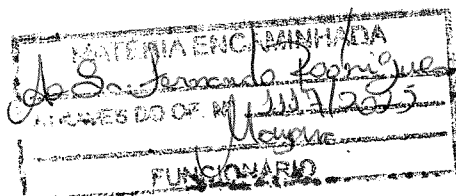 MATÉRIA ENCAMINHADA
Ao Sr. Fernando Rodrigues
ATRAVES DO OF. Nº 1117/2025
FUNCIONARIO